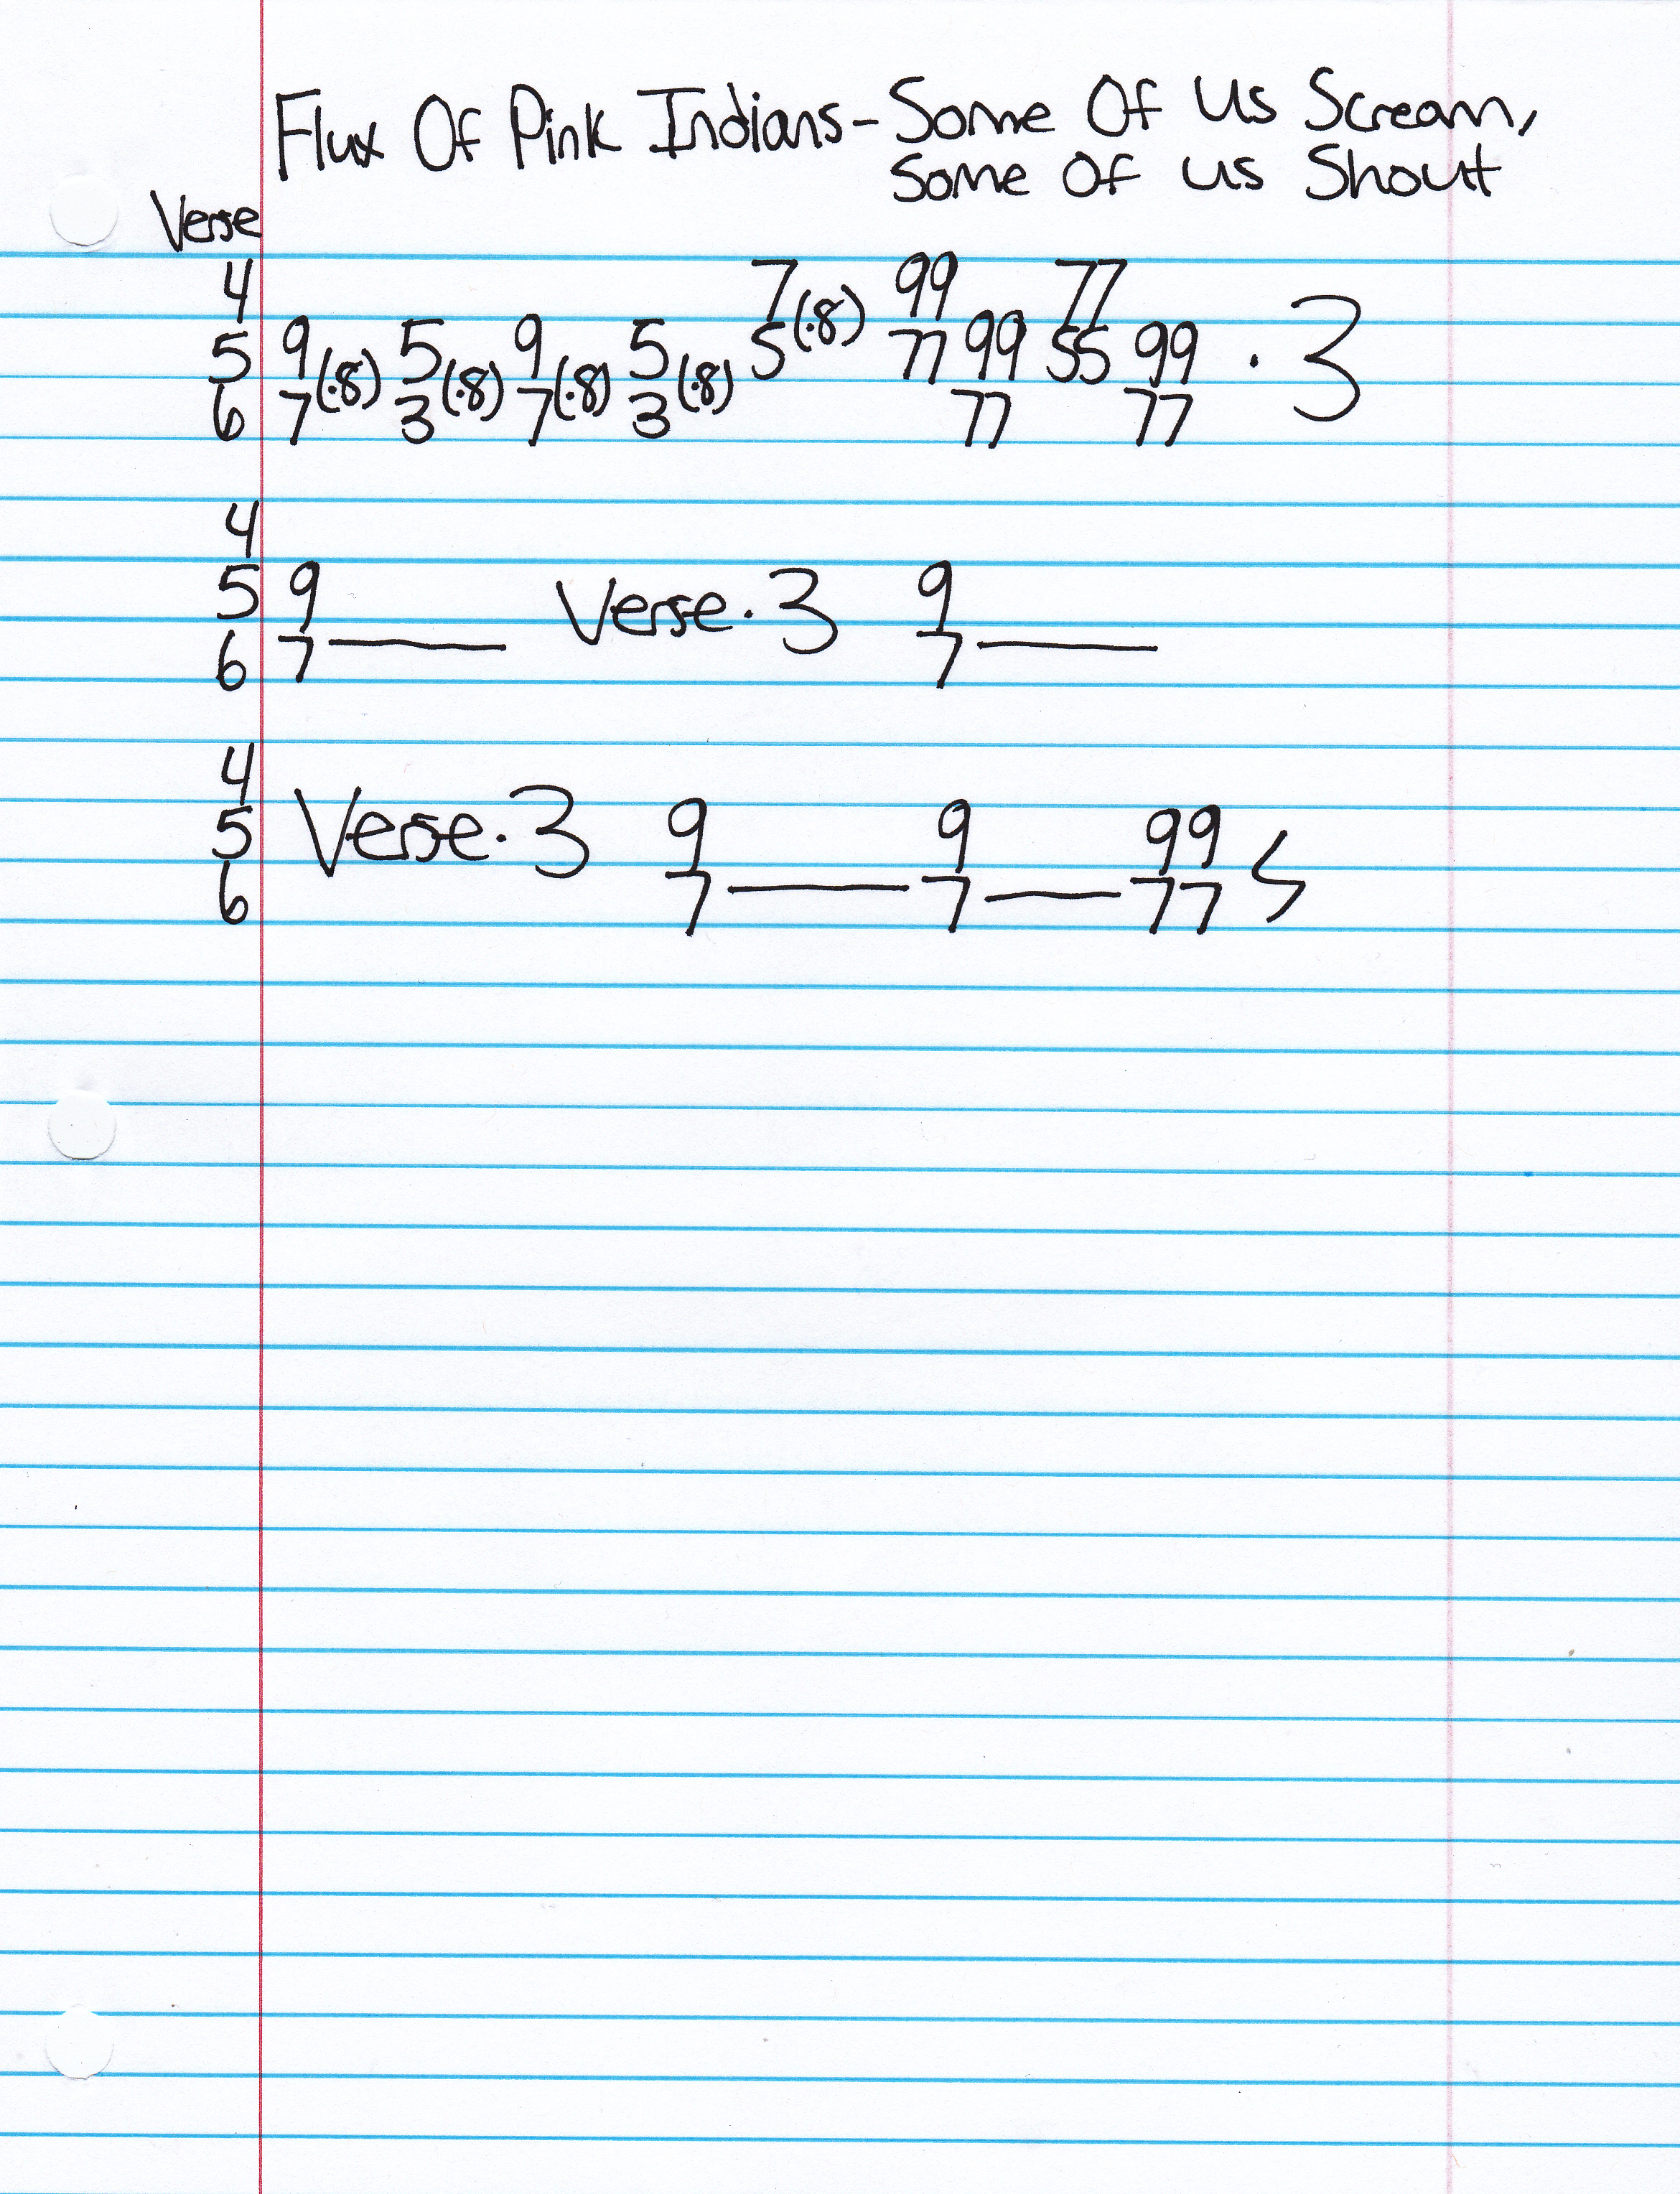 Flux Of Pink Indians - Some Of Us Scream,
Some Of Us Shout
Verse
4 7(·8) 99 77
5 9 5 9 5 5 77 99 55 99 · 3
6 7(·8) 3(·8) 7(·8) 3(·8) 77 77
4
5 9 Verse · 3 9
6 7 —— 7 ——
4
5 Verse · 3 9 9 99
6 7 —— 7 —— 77